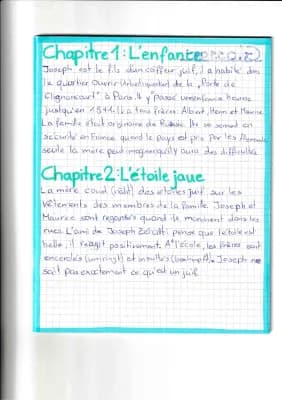 Chapitre 1: L'enfance
Joseph est le fils d'un coiffeur juif, il a habité dans
le quartier Ouvrir (Arbeiterquartier) de la „Porte de
Clignancourt", à Paris. Il y passé une enfance heureuse
jusqu'en 1941. Il a trois frères: Albert, Henri et Maurice.
La famille était originaire de Russie. Ils se sont en
sécurité en France quand le pays est pris par les Allemands
seule la mère peut imaginer qu'il y aura des difficultés
Chapitre 2: L'étoile jaue
La mère coud (näht) des étoiles juif sur les
vêtements des membres de la famille. Joseph et
Maurice sont regardés quand ils marchent dans les
rues. L'ami de Joseph Zérati pense que l'étoile est
belle, il réagit positivement. A l'école, les frères sont
encerclés (umringt) et insultés (beschimpft). Joseph ne
sait pas exactement ce qu'est un juif.